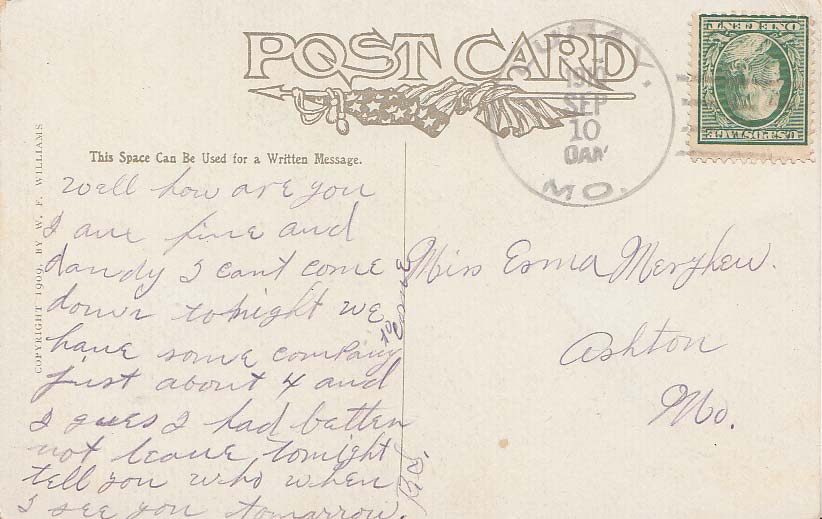 POST CARD
LURAY,
1910
SEP
10
MO.
ONE CENT
U.S. POSTAGE
COPYRIGHT 1909, BY W. F. WILLIAMS
This Space Can Be Used for a Written Message.
Well how are you
I am fine and
dandy I cant come
down tonight we
have some company
to come
just about 4 and
I gues I had better
not leave, tonight
tell you who when
I see you tomorrow.
Miss Esma
Ashton
Mo.